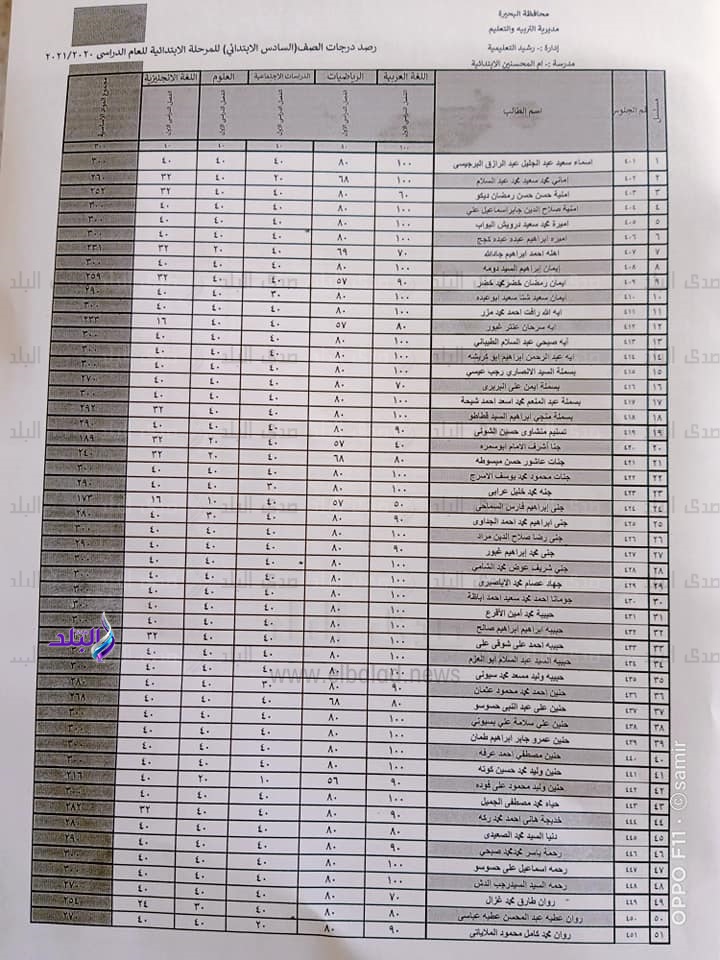 محافظة البحيرة
مديرية التربيه والتعليم
إدارة :- رشيد التعليمية
مدرسة :- ام المحسنين الابتدائية
رصد درجات الصف(السادس الابتدائي) للمرحلة الابتدائية للعام الدراسى ٢٠٢١/٢٠٢٠
مسلسل اسم الطالب اللغة العربية الرياضيات الدراسات الاجتماعية العلوم اللغة الانجليزية
١٠٠ ٨٠ ٤٠ ٤٠ ٤٠ ٣٠٠
١ ٤٠١ اسماء سعيد عبد الجليل عبد الرازق البرجيسى ١٠٠ ٨٠ ٤٠ ٤٠ ٤٠ ٣٠٠
٢ ٤٠٢ امانى محمد سعيد محمد عبد السلام ١٠٠ ٦٨ ٢٠ ٤٠ ٣٢ ٢٦٠
٣ ٤٠٣ امنية حسن حسن رمضان ديكو ٦٠ ٨٠ ٤٠ ٤٠ ٣٢ ٢٥٢
٤ ٤٠٤ امنية صلاح الدين جابر اسماعيل علي ١٠٠ ٨٠ ٤٠ ٤٠ ٤٠ ٣٠٠
٥ ٤٠٥ اميرة محمد سعيد درويش البواب ١٠٠ ٨٠ ٤٠ ٤٠ ٤٠ ٣٠٠
٦ ٤٠٦ اميره ابراهيم عبده عبده كجج ١٠٠ ٨٠ ٤٠ ٤٠ ٤٠ ٣٠٠
٧ ٤٠٧ احمد ابراهيم جادالله ٧٠ ٦٩ ٤٠ ٢٠ ٣٢ ٢٣١
٨ ٤٠٨ إيمان إبراهيم السيد دومه ١٠٠ ٨٠ ٤٠ ٤٠ ٤٠ ٣٠٠
٩ ٤٠٩ ايمان رمضان خضر محمد خضر ٩٠ ٥٧ ٤٠ ٤٠ ٣٢ ٢٥٩
١٠ ٤١٠ ايمان سعيد شتا سعيد ابوعبده ١٠٠ ٨٠ ٣٠ ٤٠ ٤٠ ٢٩٠
١١ ٤١١ ايه الله رافت احمد محمد مزر ١٠٠ ٨٠ ٤٠ ٤٠ ٤٠ ٣٠٠
١٢ ٤١٢ ايه سرحان عنتر غبور ٨٠ ٥٧ ٤٠ ٤٠ ١٦ ٢٣٣
١٣ ٤١٣ أيه صبحي عبد السلام الطيباني ١٠٠ ٨٠ ٤٠ ٤٠ ٤٠ ٣٠٠
١٤ ٤١٤ ايه عبد الرحمن ابراهيم ابو كريشه ١٠٠ ٨٠ ٤٠ ٤٠ ٤٠ ٣٠٠
١٥ ٤١٥ بسملة السيد الانصاري رجب عيسي ١٠٠ ٨٠ ٤٠ ٤٠ ٤٠ ٣٠٠
١٦ ٤١٦ بسملة ايمن على البربرى ٧٠ ٨٠ ٤٠ ٤٠ ٤٠ ٢٧٠
١٧ ٤١٧ بسملة عبد المنعم محمد اسعد احمد شيحة ١٠٠ ٨٠ ٤٠ ٤٠ ٤٠ ٣٠٠
١٨ ٤١٨ بسملة ملجي ابراهيم السيد قطاطو ١٠٠ ٨٠ ٤٠ ٤٠ ٣٢ ٢٩٢
١٩ ٤١٩ تسنيم منشاوى حسين الشونى ٩٠ ٨٠ ٤٠ ٤٠ ٤٠ ٢٩٠
٢٠ ٤٢٠ جنا أشرف الامام ابوسمره ٤٠ ٥٧ ٤٠ ٢٠ ٣٢ ١٨٩
٢١ ٤٢١ جنات عاشور حسن ميسوطه ٨٠ ٦٨ ٤٠ ٢٠ ٣٢ ٢٤٠
٢٢ ٤٢٢ جنات محمود محمد يوسف الاسرج ١٠٠ ٨٠ ٤٠ ٤٠ ٤٠ ٣٠٠
٢٣ ٤٢٣ جنه محمد خليل عرابى ١٠٠ ٨٠ ٣٠ ٤٠ ٤٠ ٢٩٠
٢٤ ٤٢٤ جنى إبراهيم فارس السماحي ٥٠ ٥٧ ٤٠ ١٠ ١٦ ١٧٣
٢٥ ٤٢٥ جنى ابراهيم محمد احمد الجداوى ٩٠ ٨٠ ٤٠ ٣٠ ٤٠ ٢٨٠
٢٦ ٤٢٦ جنى رضا صلاح الدين مراد ١٠٠ ٨٠ ٤٠ ٤٠ ٤٠ ٣٠٠
٢٧ ٤٢٧ جنى محمد إبراهيم غبور ٩٠ ٨٠ ٤٠ ٤٠ ٤٠ ٢٩٠
٢٨ ٤٢٨ جني شريف عوض محمد الشامى ١٠٠ ٨٠ ٤٠ ٤٠ ٤٠ ٣٠٠
٢٩ ٤٢٩ جهاد عصام محمد الاياصيرى ١٠٠ ٨٠ ٤٠ ٤٠ ٤٠ ٣٠٠
٣٠ ٤٣٠ جومانا احمد محمد سعيد احمد اباظة ١٠٠ ٨٠ ٤٠ ٤٠ ٤٠ ٣٠٠
٣١ ٤٣١ حبيبة محمد أمين الأقرع ١٠٠ ٨٠ ٤٠ ٤٠ ٤٠
٣٢ ٤٣٢ حبيبه ابراهيم ابراهيم صالح ١٠٠ ٨٠ ٤٠ ٤٠ ٤٠
٣٣ ٤٣٣ حبيبه احمد علي شوقى على ١٠٠ ٨٠ ٤٠ ٤٠ ٣٢
٣٤ ٤٣٤ حبيبه السيد عبد السلام أبو العزم ١٠٠ ٨٠ ٤٠ ٤٠ ٤٠ ٣٠٠
٣٥ ٤٣٥ حبيبه وليد مسعد محمد سيونى ١٠٠ ٨٠ ٤٠ ٤٠ ٤٠ ٣٠٠
٣٦ ٤٣٦ حنين احمد محمد محمود عثمان ٩٠ ٨٠ ٣٠ ٤٠ ٤٠ ٢٨٠
٣٧ ٤٣٧ حنين على عبد النبى حسوسو ٨٠ ٦٨ ٤٠ ٤٠ ٤٠ ٢٦٨
٣٨ ٤٣٨ حنين علي سلامة علي بسيوني ١٠٠ ٨٠ ٤٠ ٤٠ ٤٠ ٣٠٠
٣٩ ٤٣٩ حنين عمرو جابر ابراهيم طمان ١٠٠ ٨٠ ٤٠ ٤٠ ٤٠ ٣٠٠
٤٠ ٤٤٠ حنين مصطفي احمد عرفه ١٠٠ ٨٠ ٤٠ ٤٠ ٤٠ ٣٠٠
٤١ ٤٤١ حنين وليد محمد حسين كوته ١٠٠ ٨٠ ٤٠ ٤٠ ٤٠ ٣٠٠
٤٢ ٤٤٢ حنين وليد محمود على فوده ٩٠ ٥٦ ١٠ ٢٠ ٤٠ ٢١٦
٤٣ ٤٤٣ حياه محمد مصطفى الجميل ١٠٠ ٨٠ ٤٠ ٤٠ ٤٠ ٣٠٠
٤٤ ٤٤٤ خديجة هانى احمد محمد ركه ٩٠ ٨٠ ٤٠ ٤٠ ٣٢ ٢٨٢
٤٥ ٤٤٥ دنيا السيد محمد الصعيدى ٨٠ ٨٠ ٤٠ ٤٠ ٤٠ ٢٨٠
٤٦ ٤٤٦ رحمة ياسر محمد محمد صبحى ٩٠ ٨٠ ٤٠ ٤٠ ٤٠ ٢٩٠
٤٧ ٤٤٧ رحمه اسماعيل على حسوسو ١٠٠ ٨٠ ٤٠ ٤٠ ٤٠ ٣٠٠
٤٨ ٤٤٨ رحمه السيد السيد رجب الدش ١٠٠ ٨٠ ٤٠ ٤٠ ٤٠ ٣٠٠
٤٩ ٤٤٩ روان طارق محمد غزال ٧٠ ٨٠ ٤٠ ٤٠ ٤٠ ٢٧٠
٥٠ ٤٥٠ روان عطيه عبد المحسن عطيه عباسى ٨٠ ٨٠ ٤٠ ٣٠ ٢٤ ٢٥٤
٥١ ٤٥١ روان محمد كامل محمود الملايانى ٩٠ ٨٠ ٢٠ ٤٠ ٤٠ ٢٧٠
صدى البلد
www.elbalad.news
OPPO F11 · ©samir